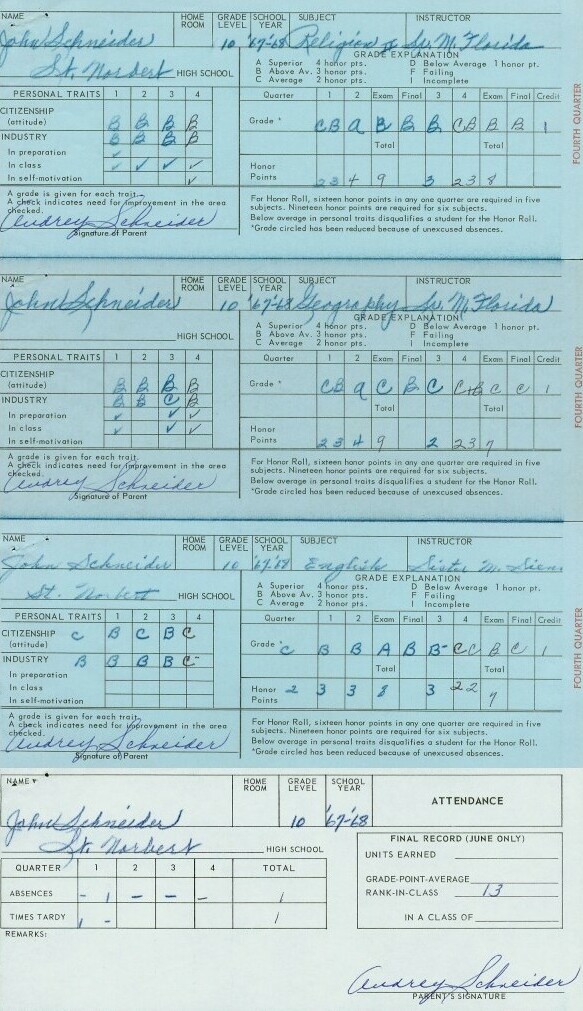 NAME HOME ROOM GRADE LEVEL SCHOOL YEAR SUBJECT INSTRUCTOR
John Schneider 10 '67-'68 Religion II Sr. M. Florida
St. Norbert HIGH SCHOOL
GRADE EXPLANATION
A Superior 4 honor pts. D Below Average 1 honor pt.
B Above Av. 3 honor pts. F Failing
C Average 2 honor pts. I Incomplete
PERSONAL TRAITS 1 2 3 4
Quarter 1 2 Exam Final 3 4 Exam Final Credit
CITIZENSHIP (attitude) B B B B
INDUSTRY B B B B
In preparation ✓
In class ✓ ✓ ✓ ✓
In self-motivation ✓
Grade * C B A B B B C B B B 1
Total Total
Honor Points 2 3 4 9 3 2 3 8
A grade is given for each trait.
A check indicates need for improvement in the area checked.
Audrey Schneider
Signature of Parent
For Honor Roll, sixteen honor points in any one quarter are required in five subjects. Nineteen honor points are required for six subjects.
Below average in personal traits disqualifies a student for the Honor Roll.
*Grade circled has been reduced because of unexcused absences.
FOURTH QUARTER
NAME HOME ROOM GRADE LEVEL SCHOOL YEAR SUBJECT INSTRUCTOR
John Schneider 10 '67-'68 Geography Sr. M. Florida
HIGH SCHOOL
GRADE EXPLANATION
A Superior 4 honor pts. D Below Average 1 honor pt.
B Above Av. 3 honor pts. F Failing
C Average 2 honor pts. I Incomplete
PERSONAL TRAITS 1 2 3 4
Quarter 1 2 Exam Final 3 4 Exam Final Credit
CITIZENSHIP (attitude) B B B B
INDUSTRY B B C B
In preparation ✓ ✓ ✓
In class ✓ ✓ ✓
In self-motivation
Grade * C B A C B C C+B C C 1
Total Total
Honor Points 2 3 4 9 2 2 3 7
A grade is given for each trait.
A check indicates need for improvement in the area checked.
Audrey Schneider
Signature of Parent
For Honor Roll, sixteen honor points in any one quarter are required in five subjects. Nineteen honor points are required for six subjects.
Below average in personal traits disqualifies a student for the Honor Roll.
*Grade circled has been reduced because of unexcused absences.
FOURTH QUARTER
NAME HOME ROOM GRADE LEVEL SCHOOL YEAR SUBJECT INSTRUCTOR
John Schneider 10 '67-'68 English Sister M.
St. Norbert HIGH SCHOOL
GRADE EXPLANATION
A Superior 4 honor pts. D Below Average 1 honor pt.
B Above Av. 3 honor pts. F Failing
C Average 2 honor pts. I Incomplete
PERSONAL TRAITS 1 2 3 4
Quarter 1 2 Exam Final 3 4 Exam Final Credit
CITIZENSHIP (attitude) C B C B C
INDUSTRY B B B B C-
In preparation
In class
In self-motivation
Grade * C B B A B B- C C B C 1
Total Total
Honor Points 2 3 3 8 3 2 2 7
A grade is given for each trait.
A check indicates need for improvement in the area checked.
Audrey Schneider
Signature of Parent
For Honor Roll, sixteen honor points in any one quarter are required in five subjects. Nineteen honor points are required for six subjects.
Below average in personal traits disqualifies a student for the Honor Roll.
*Grade circled has been reduced because of unexcused absences.
FOURTH QUARTER
NAME HOME ROOM GRADE LEVEL SCHOOL YEAR
ATTENDANCE
John Schneider 10 '67-'68
St. Norbert HIGH SCHOOL
FINAL RECORD (JUNE ONLY)
UNITS EARNED
GRADE-POINT-AVERAGE
RANK-IN-CLASS 13
IN A CLASS OF
QUARTER 1 2 3 4 TOTAL
ABSENCES - 1 - - - 1
TIMES TARDY 1 - 1
REMARKS:
Audrey Schneider
PARENT'S SIGNATURE